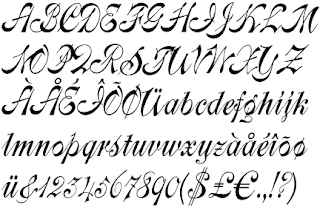 ABCDEFGHIJKLM
NOPQRSTUVWXYZ
ÀÅÉÎÕØÜabcdefghijk
lmnopqrstuvwxyzàåéîõø
ü&1234567890($£€.,!?)